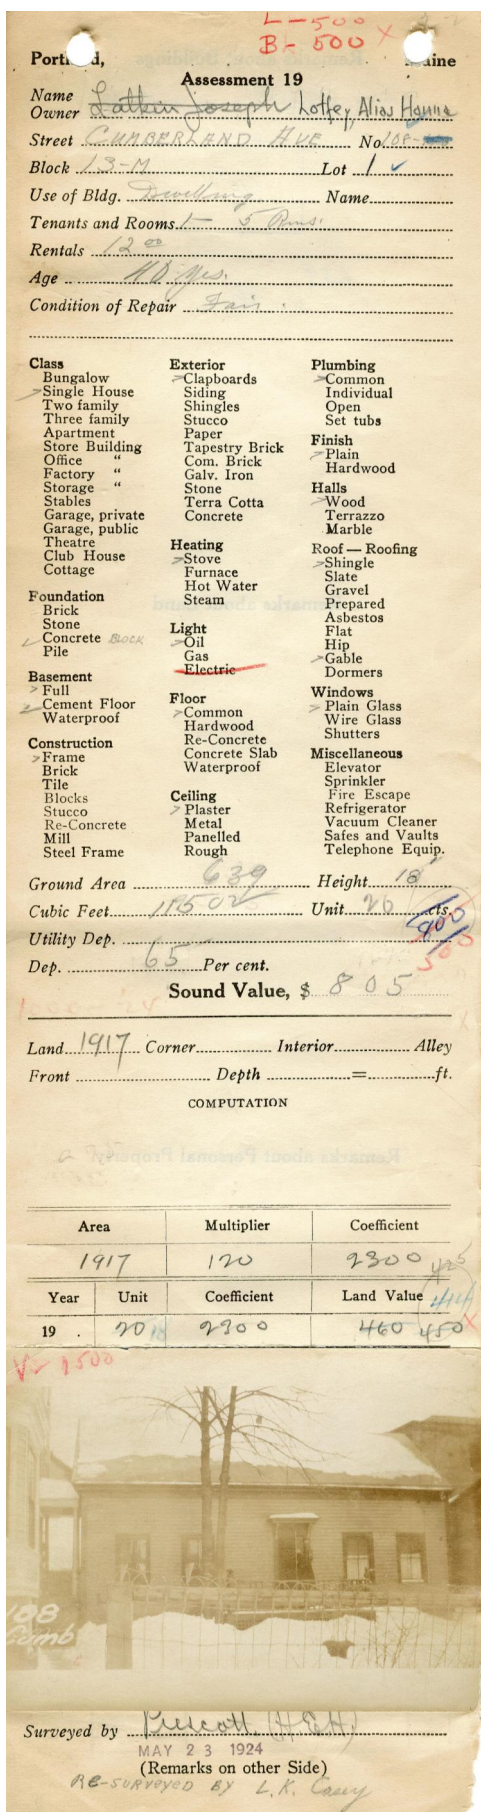 L-500 X
B-500
Portland, Maine
Assessment 19
Name
Owner Latkin Joseph Lotfey, Alias Hanna
Street CUMBERLAND AVE No. 108-
Block 13-M Lot 1 ✓
Use of Bldg. Dwelling Name
Tenants and Rooms 1- 5 Rms.
Rentals 12 00
Age 40 yrs.
Condition of Repair Fair.
Class
Bungalow
Single House
Two family
Three family
Apartment
Store Building
Office "
Factory "
Storage "
Stables
Garage, private
Garage, public
Theatre
Club House
Cottage
Foundation
Brick
Stone
Concrete BLOCK
Pile
Basement
Full
Cement Floor
Waterproof
Construction
Frame
Brick
Tile
Blocks
Stucco
Re-Concrete
Mill
Steel Frame
Exterior
Clapboards
Siding
Shingles
Stucco
Paper
Tapestry Brick
Com. Brick
Galv. Iron
Stone
Terra Cotta
Concrete
Heating
Stove
Furnace
Hot Water
Steam
Light
Oil
Gas
Electric
Floor
Common
Hardwood
Re-Concrete
Concrete Slab
Waterproof
Ceiling
Plaster
Metal
Panelled
Rough
Plumbing
Common
Individual
Open
Set tubs
Finish
Plain
Hardwood
Halls
Wood
Terrazzo
Marble
Roof — Roofing
Shingle
Slate
Gravel
Prepared
Asbestos
Flat
Hip
Gable
Dormers
Windows
Plain Glass
Wire Glass
Shutters
Miscellaneous
Elevator
Sprinkler
Fire Escape
Refrigerator
Vacuum Cleaner
Safes and Vaults
Telephone Equip.
Ground Area 639 Height 18'
Cubic Feet 11502 Unit 20 cts.
Utility Dep. 500
Dep. 65 Per cent.
Sound Value, $ 805
Land 1917 Corner Interior Alley
Front Depth = ft.
COMPUTATION
Area Multiplier Coefficient
1917 120 2300 425
Year Unit Coefficient Land Value 414
19 . 20 18 2300 460 450 X
1500
108
Cumb
Surveyed by Prescott (HEH)
MAY 23 1924
(Remarks on other Side)
RE-SURVEYED BY L.K. Casey